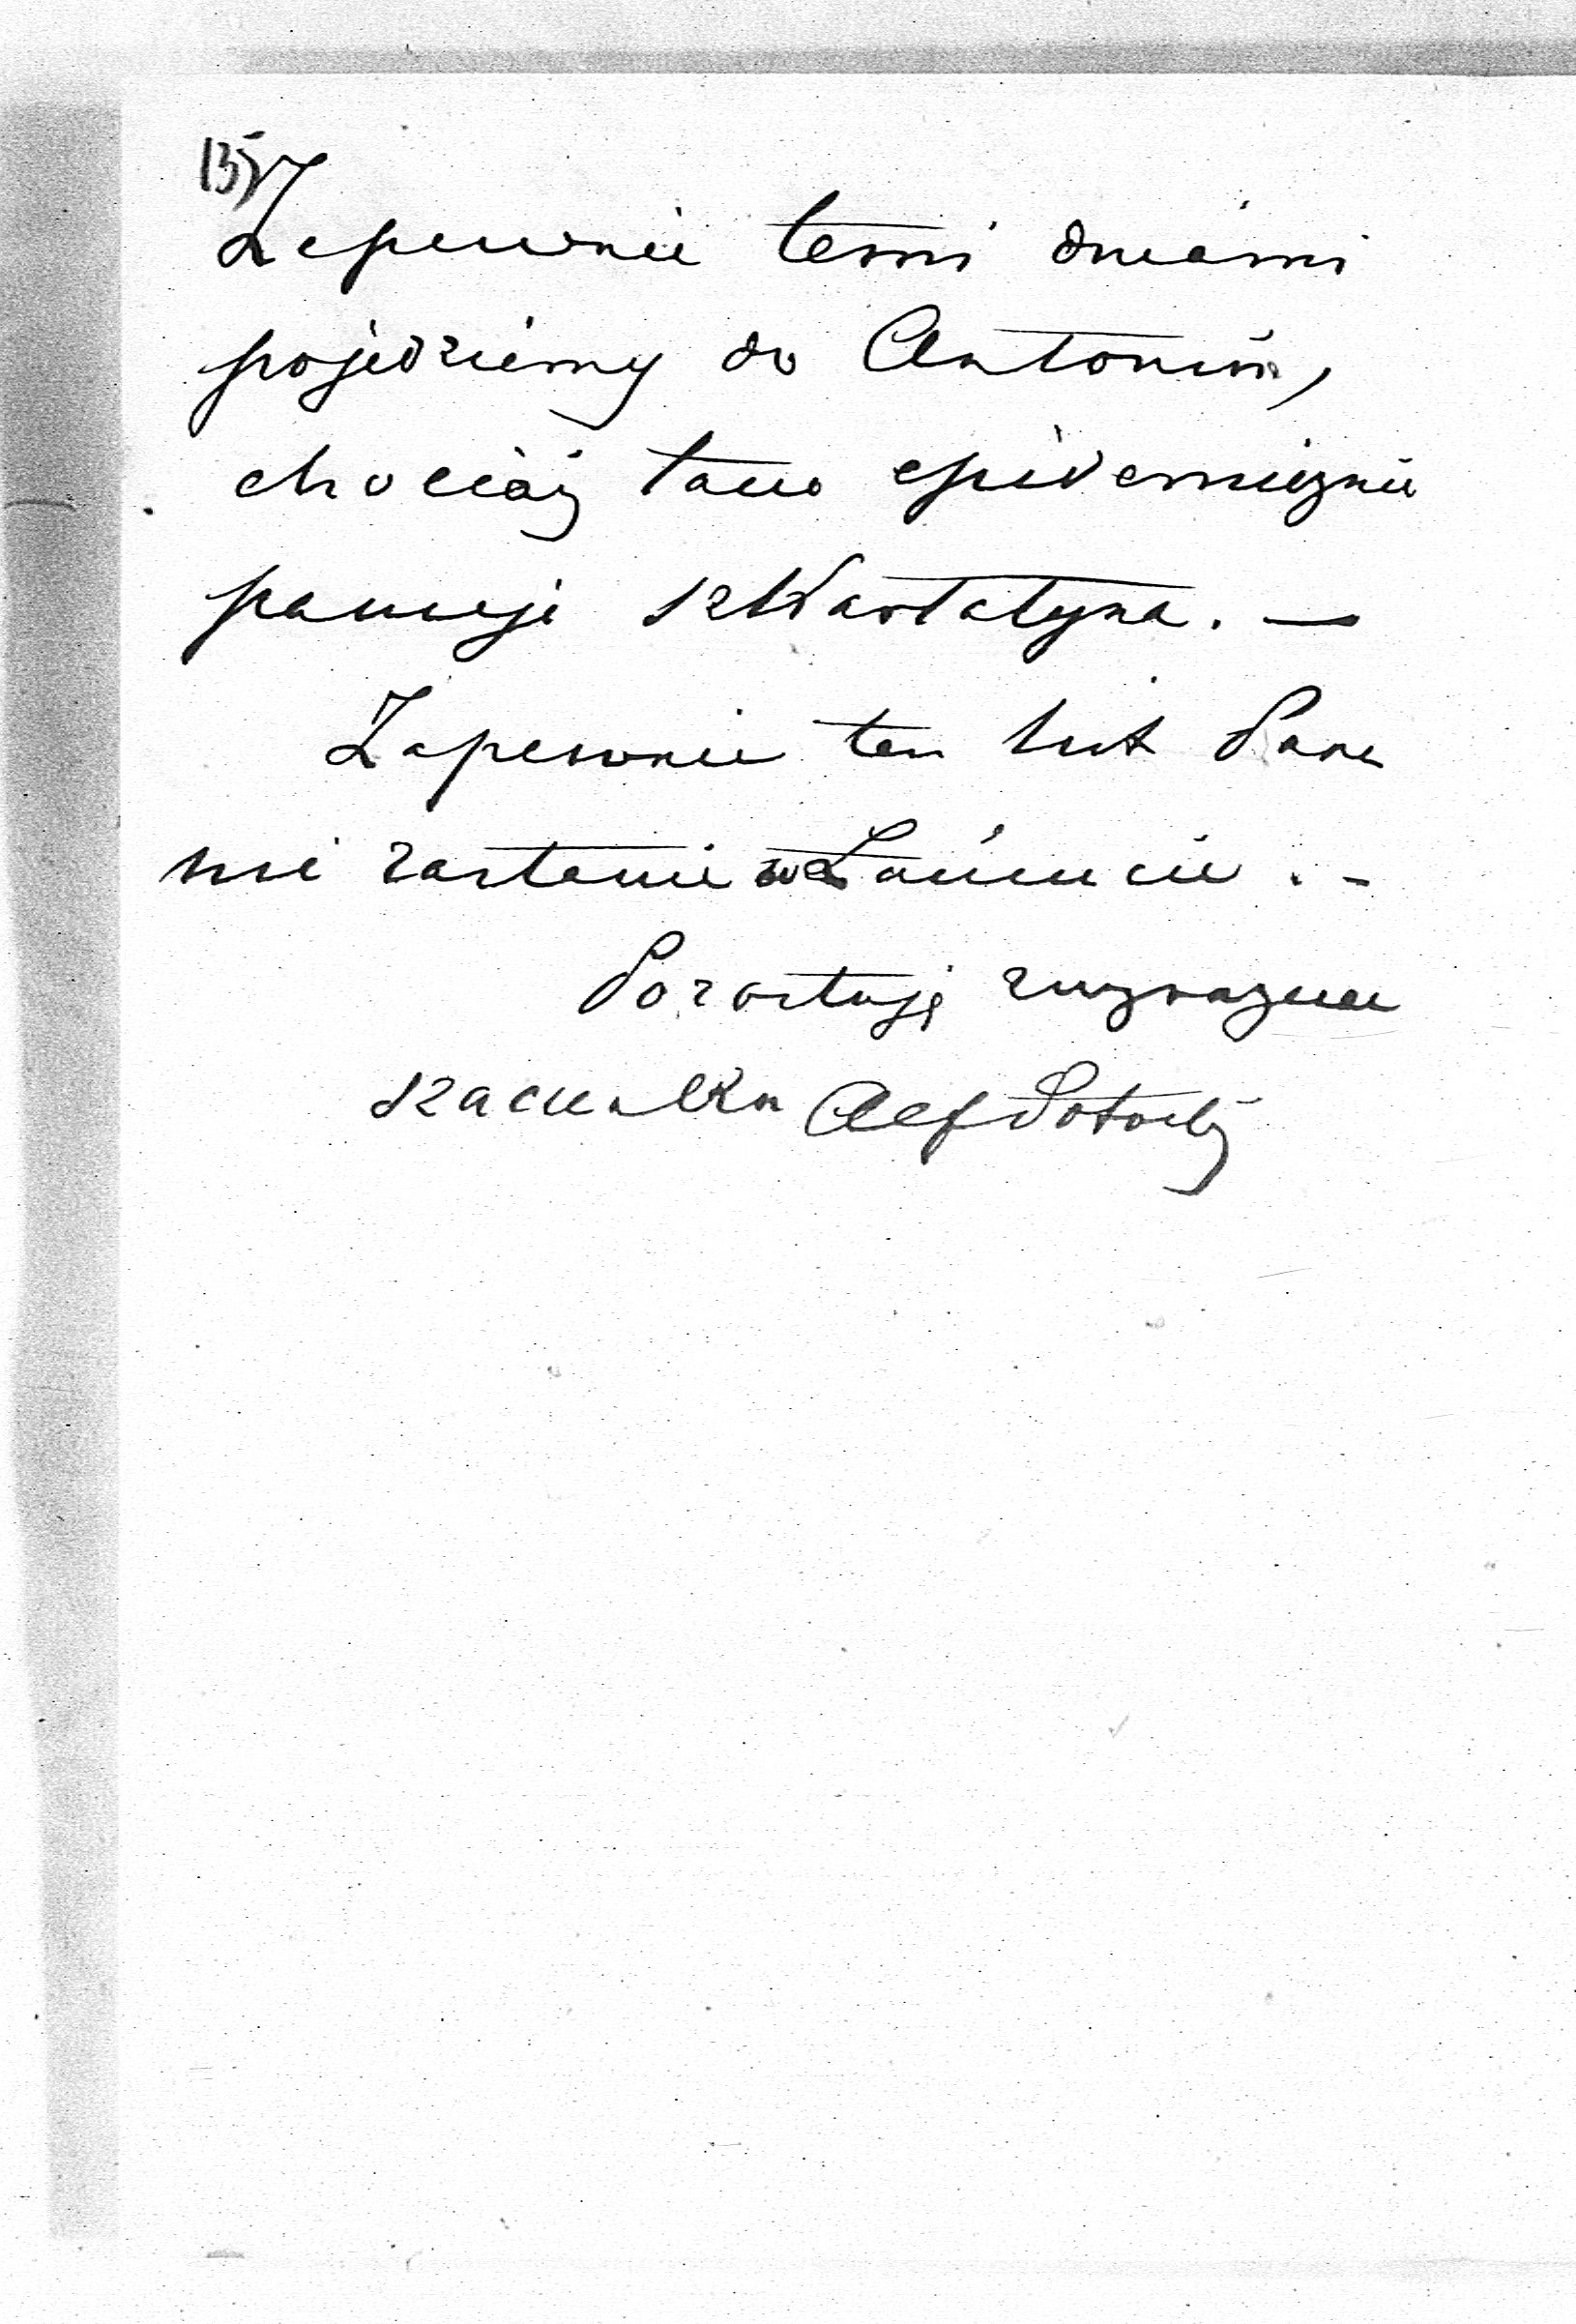 135
Zapewnie temi dniami
pojedziemy do Antonin,
chociaż tam epidemicznie
panuje szkarlatyna. —
Zapewnie ten list Pana
nie zastanie w Łańcucie . -
Pozostaję z wyrazem
szacunku Alf Potocki